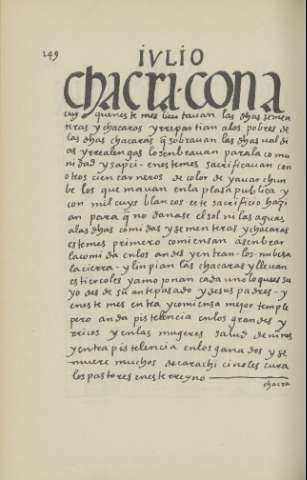 249
IVLIO
chacra.cona
cuy q̃ quieneste mes bicitauan las dhas semen
teras y chacaras y rrepartian alos pobres de
las dhas chacaras q̃ sobrauan las dhas ualdi
as y rrealengas lo senbrauan para la como
nidad y sapci - eneste mes sacrificauan con
otros cien carneros de color de yauar chun
be los que mauan enla plasa publica y
con mil cuys blancos este sacrificio hazi
an para q̃ no danase el sol ni las aguas
alas dhas comidas y sementeras y chacaras
este mes primero comiensan a senbrar
la comida enlos andes y entran los nubes a
la cierra - y linpian las chacaras y lleuan
estiercoles y amojonan cada uno lo ques su
yo des de su antepasado y de sus padres - y
eneste mes entra y comiensa mejor temple
pero anda pistelencia enlos grandes y
rricos y enlas mugeres salud de ninos
y entra pistelencia enlos ganados y se
muere muchos de carachi ci noles cura
los pastores eneste rreyno
chacra